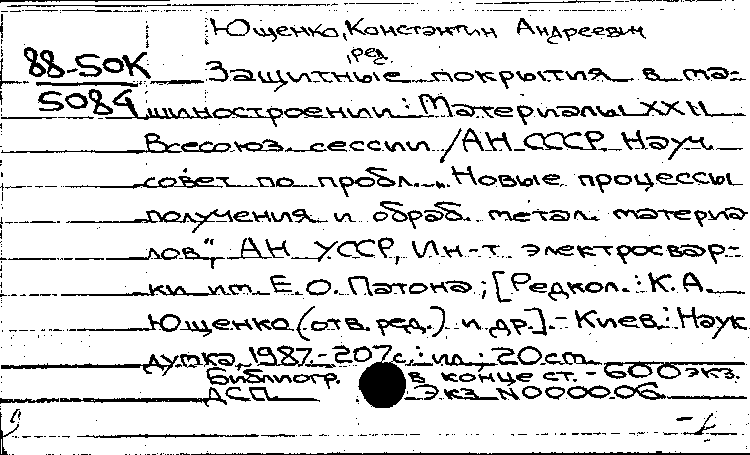 Ющенко, Константин Андреевич
, ред.
88-50К
5084
Защитные покрытия в ма-
шиностроении : Материалы XXII
Всесоюз. сессии / АН СССР, Науч.
совет по пробл. „Новые процессы
получения и обраб. метал. материа
лов", АН УССР, Ин-т электросвар-
ки им. Е. О. Патона ; [Редкол. : К. А.
Ющенко (отв. ред.) и др.]. - Киев : Наук
думка, 1987. - 207 с. : ил ; 20 см.
Библиогр. в конце ст. - 600 экз.
ДСП Экз N000006